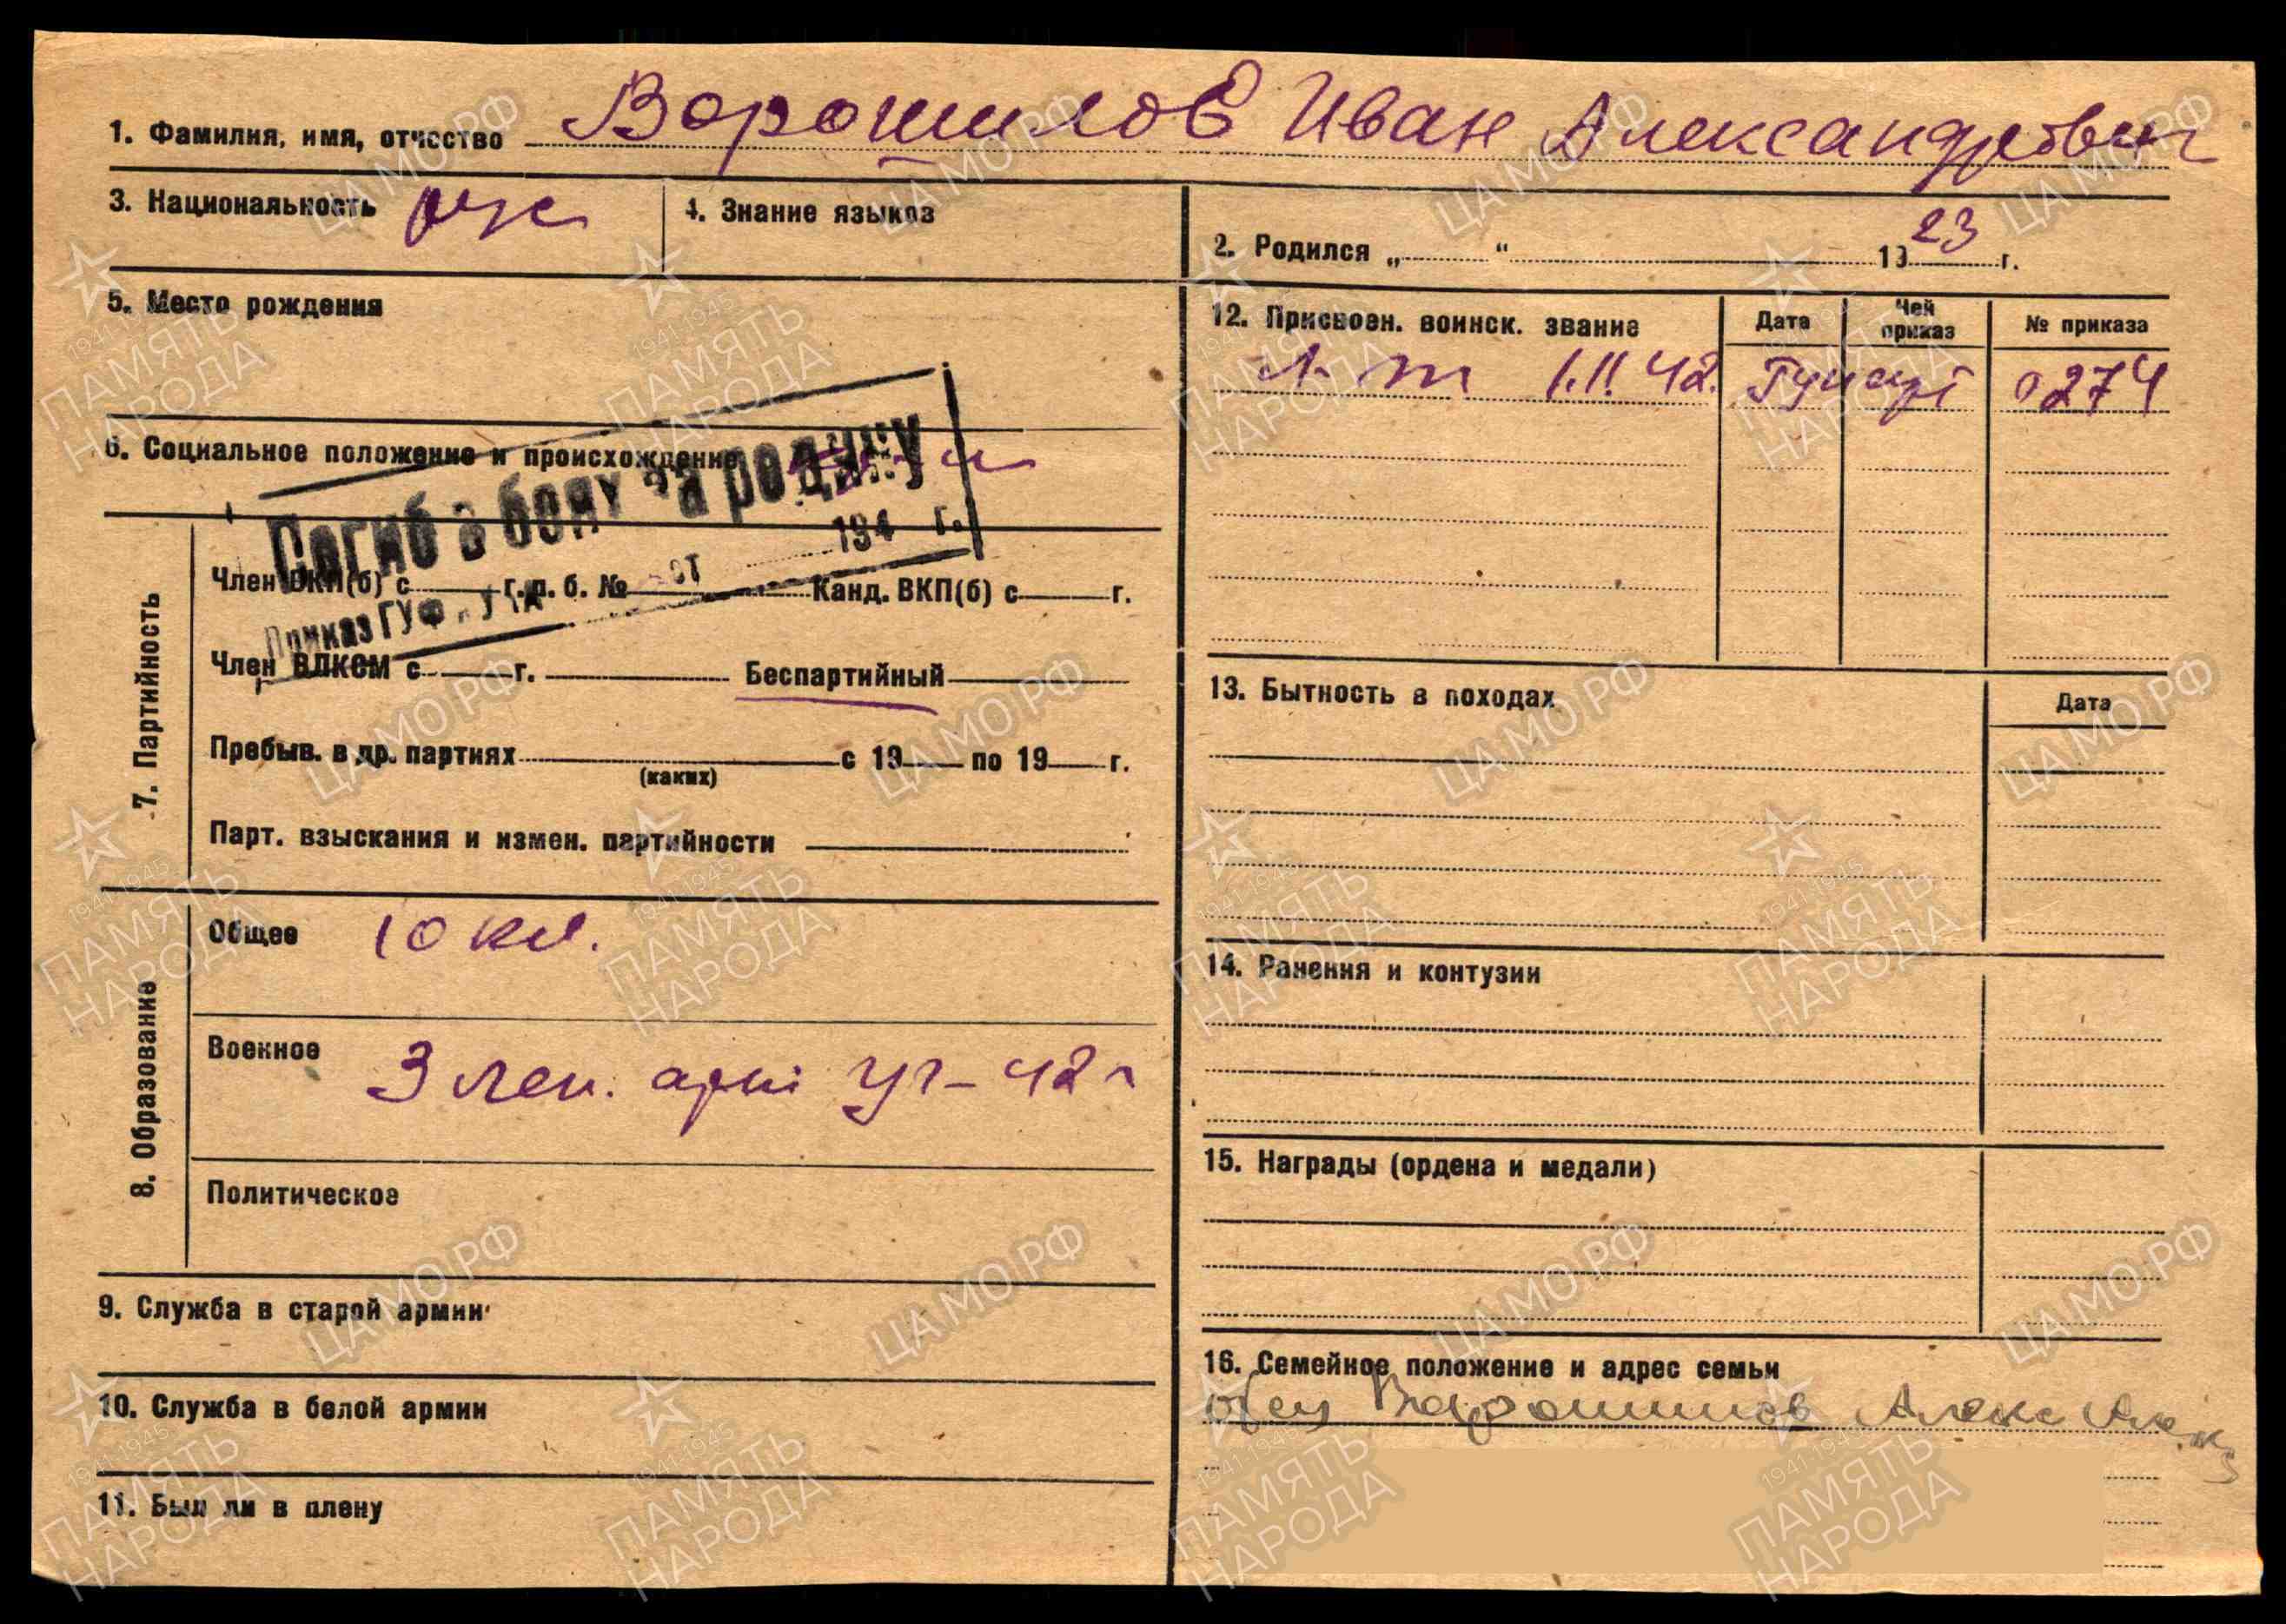 1. Фамилия, имя, отчество Ворошилов Иван Александрович
3. Национальность рус
4. Знание языков
2. Родился „ “ 1923 г.
5. Место рождения
12. Присвоен. воинск. звание Дата Чей приказ № приказа
л-т 1.11.42. 0274
6. Социальное положение и происхождение
Погиб в боях за родину
Приказ ГУФ от 194 г.
7. Партийность
Член ВКП(б) с г. п. б. № Канд. ВКП(б) с г.
Член ВЛКСМ с г. Беспартийный
Пребыв. в др. партиях с 19 по 19 г.
(каких)
Парт. взыскания и измен. партийности
13. Бытность в походах Дата
8. Образование
Общее 10 кл.
Военное 3 лен. арт уч-42г
Политическое
14. Ранения и контузии
15. Награды (ордена и медали)
9. Служба в старой армии
10. Служба в белой армии
11. Был ли в плену
16. Семейное положение и адрес семьи
отец Ворошилов Алекс Алекс
ЦАМО.РФ
1941-1945
ПАМЯТЬ
НАРОДА